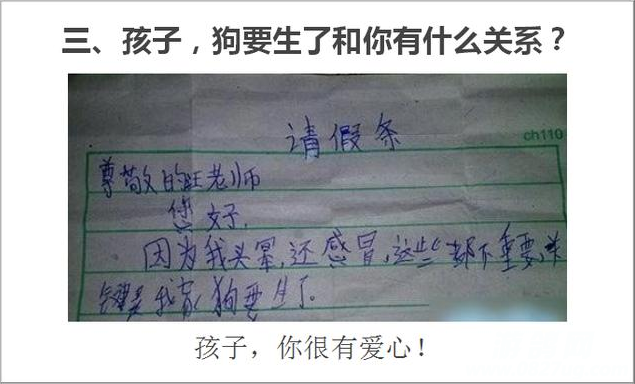 三、孩子，狗要生了和你有什么关系？
请假条
ch110
尊敬的旺老师
您好,
因为我头晕,还感冒,这些都不重要,关
键是我家狗要生了。
孩子，你很有爱心！